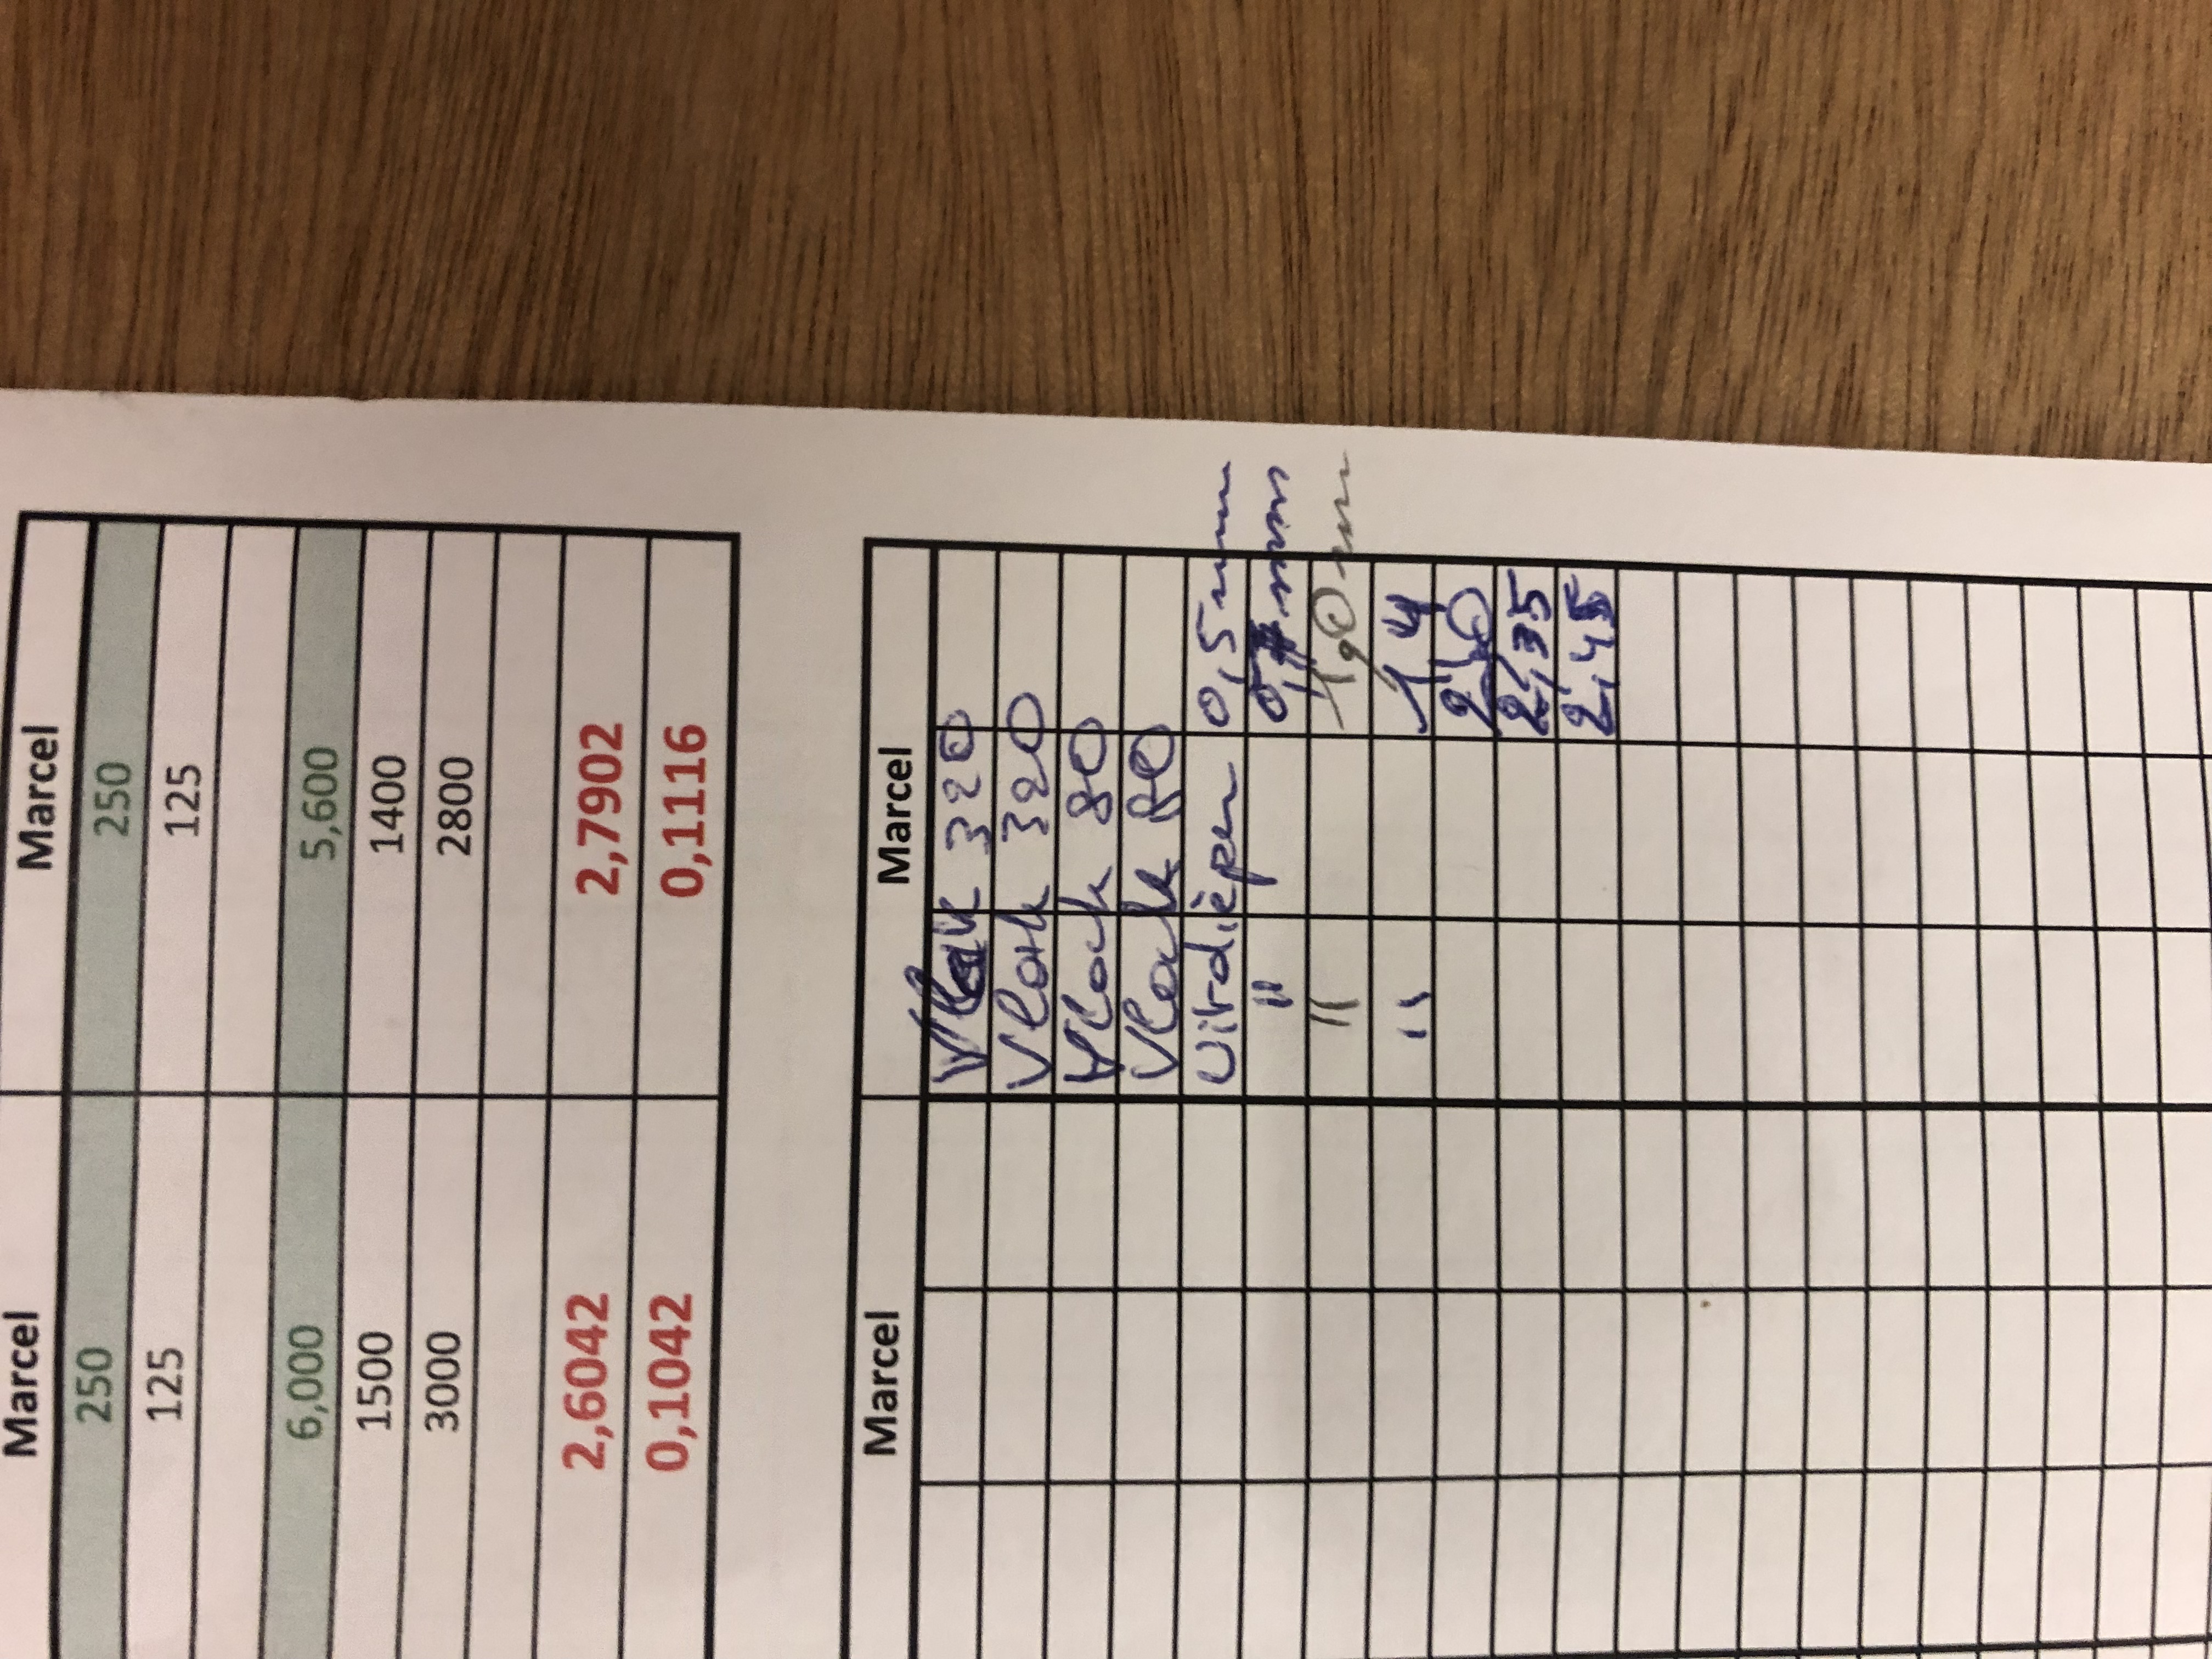 Marcel Marcel
250 250
125 125
6,000 5,600
1500 1400
3000 2800
2,6042 2,7902
0,1042 0,1116
Marcel Marcel
Vlak 320
Vlak 320
Vlak 80
Vlak 80
Uitdiepen 0,5mm
" 0,7mm
" 1,0mm
" 1,4
2,0
2,35
2,45